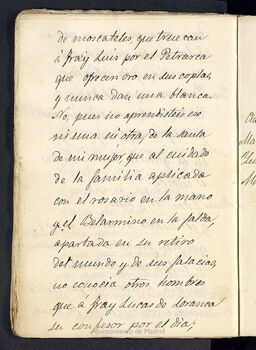 de moscateles que truecan
á fray Luis por el Petrarca
que ofrecen oro en sus coplas,
y nunca dan una blanca.
No, pues no aprendisteis eso
ni una ni otra, de la santa
de mi mujer, que al cuidado
de la familia aplicada
con el rosario en la mano
y el Belarmino en la falda,
apartada en su retiro
del mundo y de sus falacias,
no conocia otros hombres
que á fray Lucas de Loranca
su confesor por el dia,
Ayuntamiento de Madrid